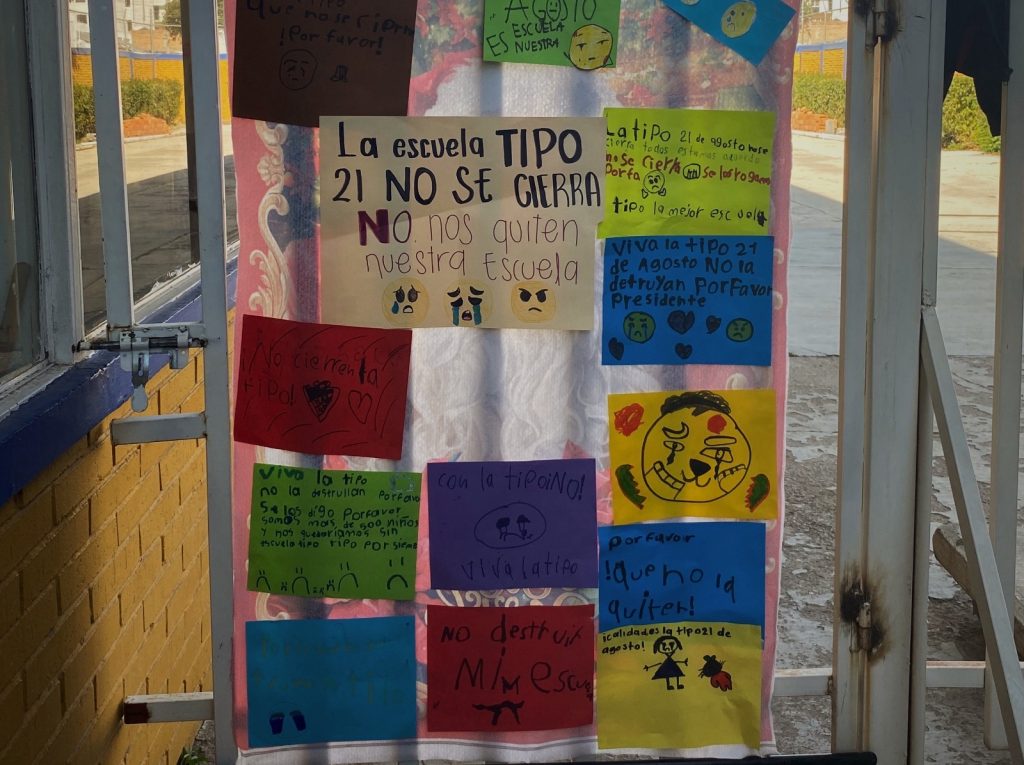 que no se cierre
¡Por favor!
AGOSTO
ES ESCUELA
NUESTRA
La escuela TIPO
21 NO SE CIERRA
NO nos quiten
nuestra Escuela
La tiPo 21 de agosto no se
cierra todos estamos
no se cierra se los
Porfa
tipo la mejor escuela
viva la tipo 21
de Agosto No la
detruyan Porfavor
Presidente
¡No cierren la
tipo!
viva la tipo
no la destrullan porfavor
se los digo porfavor
somos mas de 500 niños
y nos quedariamos sin
escuela tipo tipo por siempre
con la tipo¡NO!
viva la tipo
porfavor
!Que no la
quiten!
NO destruir
Mi escu
¡calidades la tipo 21 de
agosto!